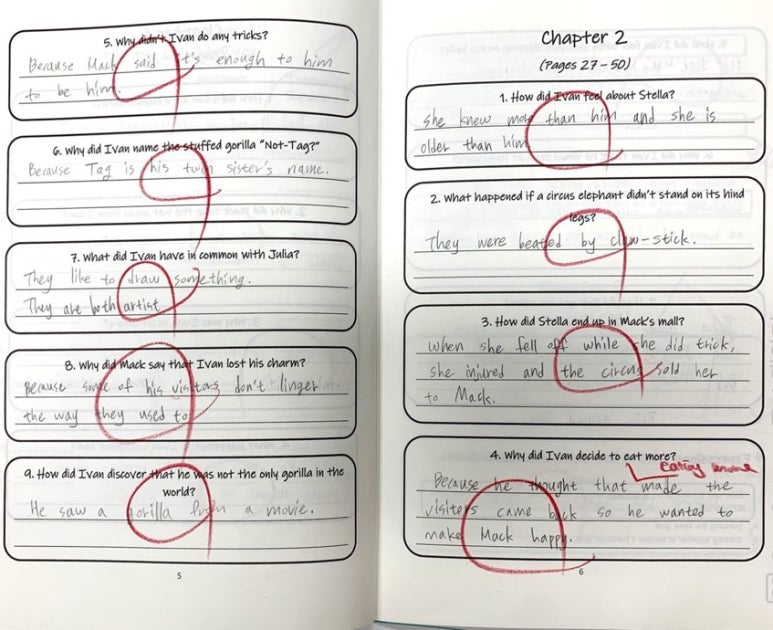 5. Why didn't Ivan do any tricks?
Because Mack said it's enough to him
to be him.
6. Why did Ivan name the stuffed gorilla "Not-Tag?"
Because Tag is his twin sister's name.
7. What did Ivan have in common with Julia?
They like to draw something.
They are both artist
8. Why did Mack say that Ivan lost his charm?
Because some of his visitors don't linger in
the way they used to
9. How did Ivan discover that he was not the only gorilla in the
world?
He saw a gorilla from a movie.
5
Chapter 2
(Pages 27 – 50)
1. How did Ivan feel about Stella?
She knew more than him and she is
older than him
2. What happened if a circus elephant didn't stand on its hind
legs?
They were beated by claw-stick.
3. How did Stella end up in Mack's mall?
when she fell off while she did trick,
she injured and the circus sold her
to Mack.
4. Why did Ivan decide to eat more?
eating more
Because he thought that made the
visiters came back so he wanted to
make Mack happy.
6